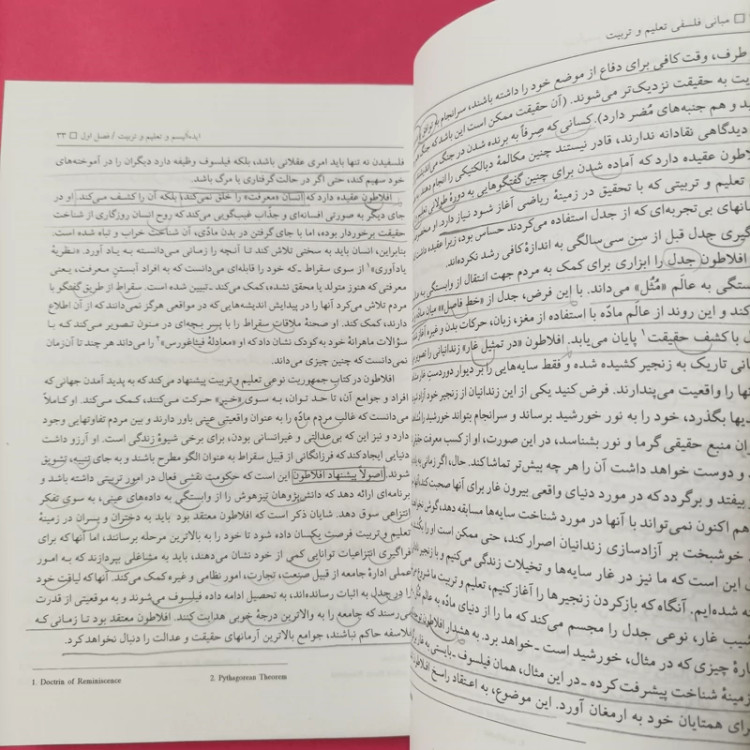 مبانی فلسفی تعلیم و تربیت
طرف، وقت کافی برای دفاع از موضع خود را داشته باشند، سرانجام به
به حقیقت نزدیک‌تر می‌شوند. (آن حقیقت ممکن است این باشد که جنگ
و هم جنبه‌های مُضر دارد). کسانی که صِرفاً به برنده شدن در جنگ
دیدگاهی نقادانه ندارند، قادر نیستند چنین مکالمهٔ دیالکتیکی را انجام دهند.
عقیده دارد که آماده شدن برای چنین گفتگوهایی به دورهٔ طولانی
تعلیم و تربیتی که با تحقیق در زمینهٔ ریاضی آغاز شود نیاز دارد. او
بی‌تجربه‌ای که از جدل استفاده می‌کردند حساس بود؛ زیرا عقیده
جدل قبل از سن سی‌سالگی به اندازهٔ کافی رشد نکرده‌اند.
افلاطون جدل را ابزاری برای کمک به مردم جهت انتقال از وابستگی به
به عالَم «مُثُل» می‌داند. با این فرض، جدل از «خط فاصل» میان
کند و این روند از عالَم مادّه با استفاده از مغز، زبان، حرکات بدن و غیره آغاز
با کشف حقیقت۱ پایان می‌یابد. افلاطون «در تمثیل غار» زندانیانی را تصویر
تاریک به زنجیر کشیده شده و فقط سایه‌هایی را بر دیوار دوردستِ غار
را واقعیت می‌پندارند. فرض کنید یکی از این زندانیان از زنجیر خود آزاد
بگذرد، خود را به نور خورشید برساند و سرانجام بتواند خورشید را
منبع حقیقی گرما و نور بشناسد، در این صورت، او از کسب معرفت
و دوست خواهد داشت آن را هر چه بیش‌تر تماشا کند. حال، اگر زمانی به
بیفتد و برگردد که در مورد دنیای واقعی بیرون غار برای آنها صحبت کند،
هم اکنون نمی‌تواند با آنها در مورد شناخت سایه‌ها مسابقه دهد، گوش
خوشبخت بر آزادسازی زندانیان اصرار کند، حتی ممکن است او را
این است که ما نیز در غار سایه‌ها و تخیلات زندگی می‌کنیم و با زنجیر
شده‌ایم. آنگاه که باز کردن زنجیرها را آغاز کنیم، تعلیم و تربیت ما شروع
غار، نوعی جدل را مجسم می‌کند که ما را از دنیای مادّه به عالم
چیزی که در مثال، خورشید است ـ خواهد برد. به هشدار افلاطون
شناخت پیشرفت کرده ـ در این مثال، همان فیلسوف ـ بایستی به غار
برای همتایان خود به ارمغان آورد. این موضوع، به اعتقاد راسخ
ایده‌آلیسم و تعلیم و تربیت / فصل اول ۲۳
فلسفیدن نه تنها باید امری عقلانی باشد، بلکه فیلسوف وظیفه دارد دیگران را در آموخته‌های
خود سهیم کند، حتی اگر در حالت گرفتاری یا مرگ باشد.
افلاطون عقیده دارد که انسان «معرفت» را خلق نمی‌کند، بلکه آن را کشف می‌کند. او در
جای دیگر به صورتی افسانه‌ای و جذاب غیب‌گویی می‌کند که روح انسان روزگاری از شناخت
حقیقت برخوردار بوده، اما با جای گرفتن در بدن مادّی، آن شناخت خراب و تباه شده است.
بنابراین، انسان باید به سختی تلاش کند تا آنچه را زمانی می‌دانسته به یاد آورد. «نظریهٔ
یادآوری»۱ از سوی سقراط ـ که خود را قابله‌ای می‌دانست که به افراد آبستنِ معرفت، یعنی
معرفتی که هنوز متولد یا محقق نشده، کمک می‌کند ـ تبیین شده است. سقراط از طریق گفتگو با
مردم تلاش می‌کرد آنها را در پیدایش اندیشه‌هایی که در مواقعی هرگز نمی‌دانند که از آن اطلاع
دارند، کمک کند. او صحنهٔ ملاقات سقراط را با پسر بچه‌ای در منون تصویر می‌کند که با
سؤالات ماهرانهٔ خود به کودک نشان داد که او «معادلهٔ فیثاغورس»۲ را می‌داند هر چند تا آن‌زمان
نمی‌دانست که چنین چیزی می‌داند.
افلاطون در کتاب جمهوریت نوعی تعلیم و تربیت پیشنهاد می‌کند که به پدید آمدن جهانی که
افراد و جوامع آن، تا حد توان، به سوی «خیر» حرکت می‌کنند، کمک می‌کند. او کاملاً
می‌دانست که غالب مردم مادّه را به عنوان واقعیتی عینی باور دارند و بین مردم تفاوتهایی وجود
دارد و نیز این که بی‌عدالتی و غیرانسانی بودن، برای برخی شیوهٔ زندگی است. او آرزو داشت
دنیایی ایجاد کند که فرزانگانی از قبیل سقراط به عنوان الگو مطرح باشند و به جای تنبیه، تشویق
شوند. اصولاً پیشنهاد افلاطون این است که حکومت نقشی فعال در امور تربیتی داشته باشد و
برنامه‌ای ارائه دهد که دانش‌پژوهان تیزهوش را از وابستگی به داده‌های عینی، به سوی تفکر
انتزاعی سوق دهد. شایان ذکر است که افلاطون معتقد بود باید به دختران و پسران در زمینهٔ
تعلیم و تربیت فرصت یکسان داده شود تا خود را به بالاترین مرحله برسانند، اما آنها که برای
فراگیری انتزاعیات توانایی کمی از خود نشان می‌دهند، باید به مشاغلی بپردازند که به امور
عملی ادارهٔ جامعه از قبیل صنعت، تجارت، امور نظامی و غیره کمک می‌کند. آنها که لیاقت خود
را در جدل به اثبات رسانده‌اند، به تحصیل ادامه داده فیلسوف می‌شوند و به موقعیتی از قدرت
می‌رسند که جامعه را به والاترین درجهٔ خوبی هدایت کنند. افلاطون معتقد بود تا زمانی که
فلاسفه حاکم نباشند، جوامع بالاترین آرمانهای حقیقت و عدالت را دنبال نخواهد کرد.
1. Doctrin of Reminiscence 2. Pythagorean Theorem